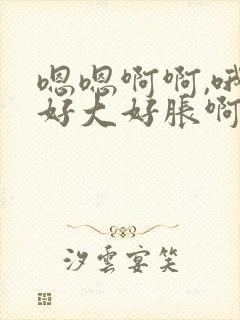 嗯嗯啊啊,哦
好大好胀啊
汐云宴笑